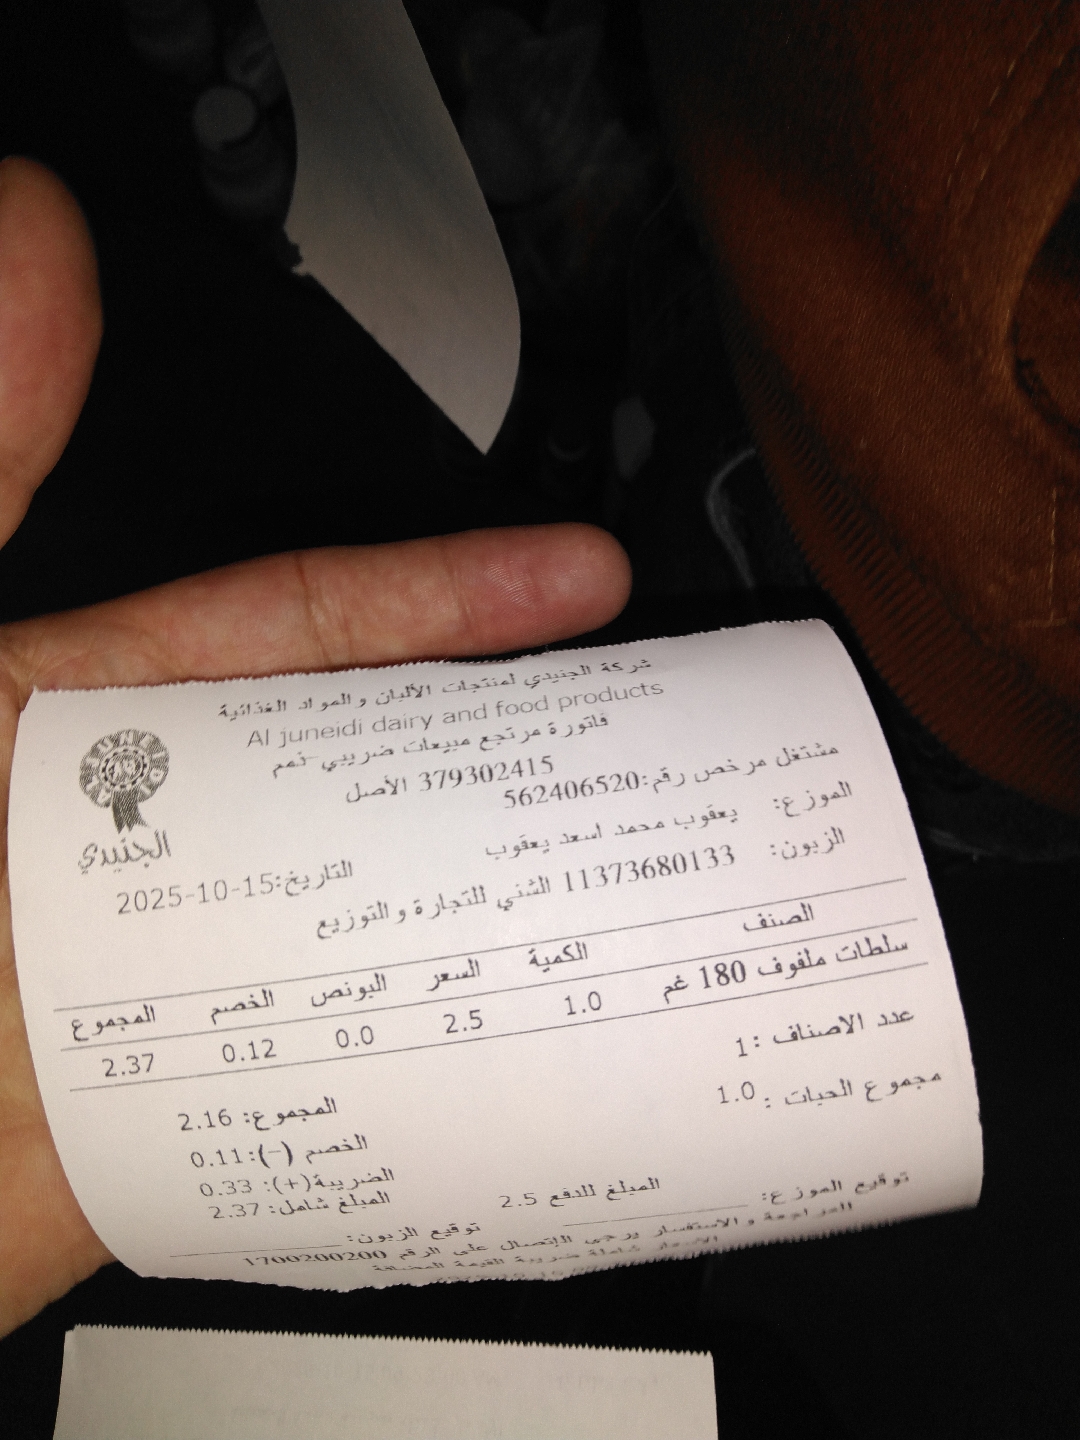 شركة الجنيدي لمنتجات الألبان و المواد الغذائية
Al juneidi dairy and food products
فاتورة مرتجع مبيعات ضريبي-ذمم
379302415 الأصل
مشتغل مرخص رقم:562406520
الموزع: يعقوب محمد اسعد يعقوب
الجنيدي
التاريخ:2025-10-15
الزبون: 11373680133 الشني للتجارة و التوزيع
الصنف الكمية السعر البونص الخصم المجموع
سلطات ملفوف 180 غم 1.0 2.5 0.0 0.12 2.37
عدد الاصناف :1
مجموع الحبات : 1.0
المجموع: 2.16
الخصم (-):0.11
الضريبة(+): 0.33
المبلغ شامل: 2.37
المبلغ للدفع 2.5
توقيع الموزع:
توقيع الزبون:
للمراجعة و الاستفسار يرجى الإتصال على الرقم 1700200200
الاسعار شاملة ضريبة القيمة المضافة